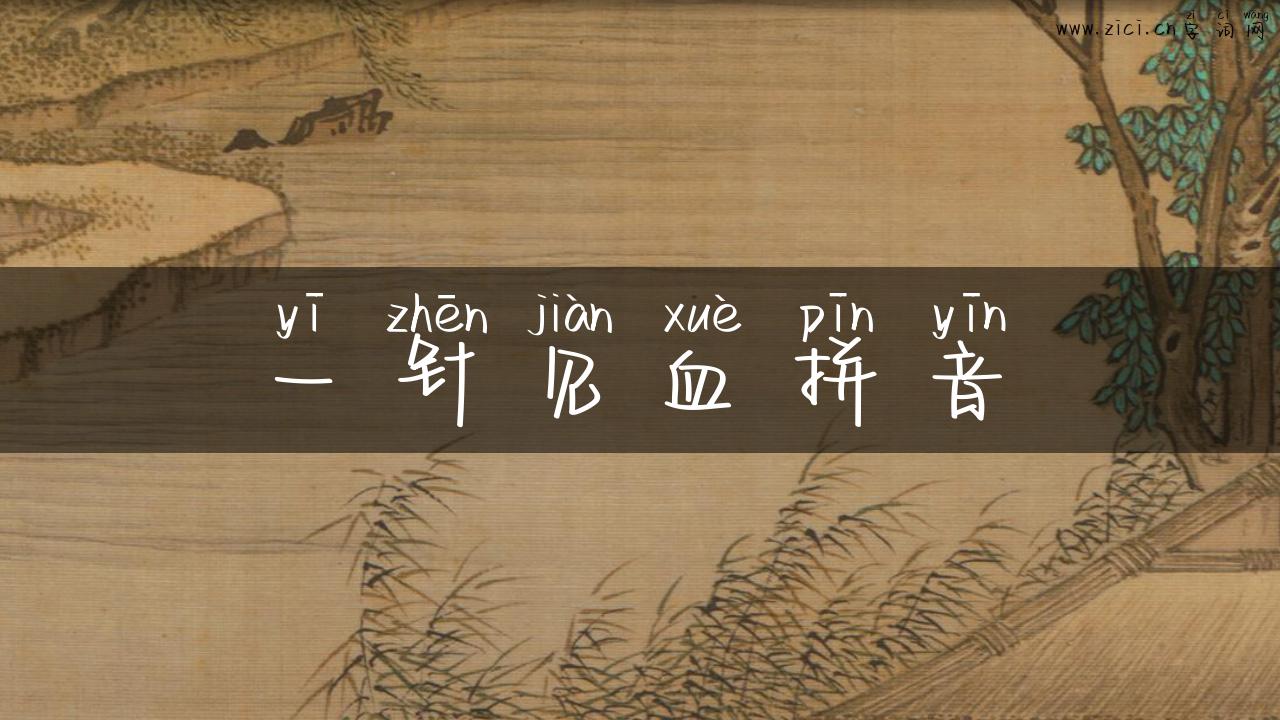 zì cí wǎng
www.zici.cn 字词网
yī zhēn jiàn xuè pīn yīn
一针见血拼音